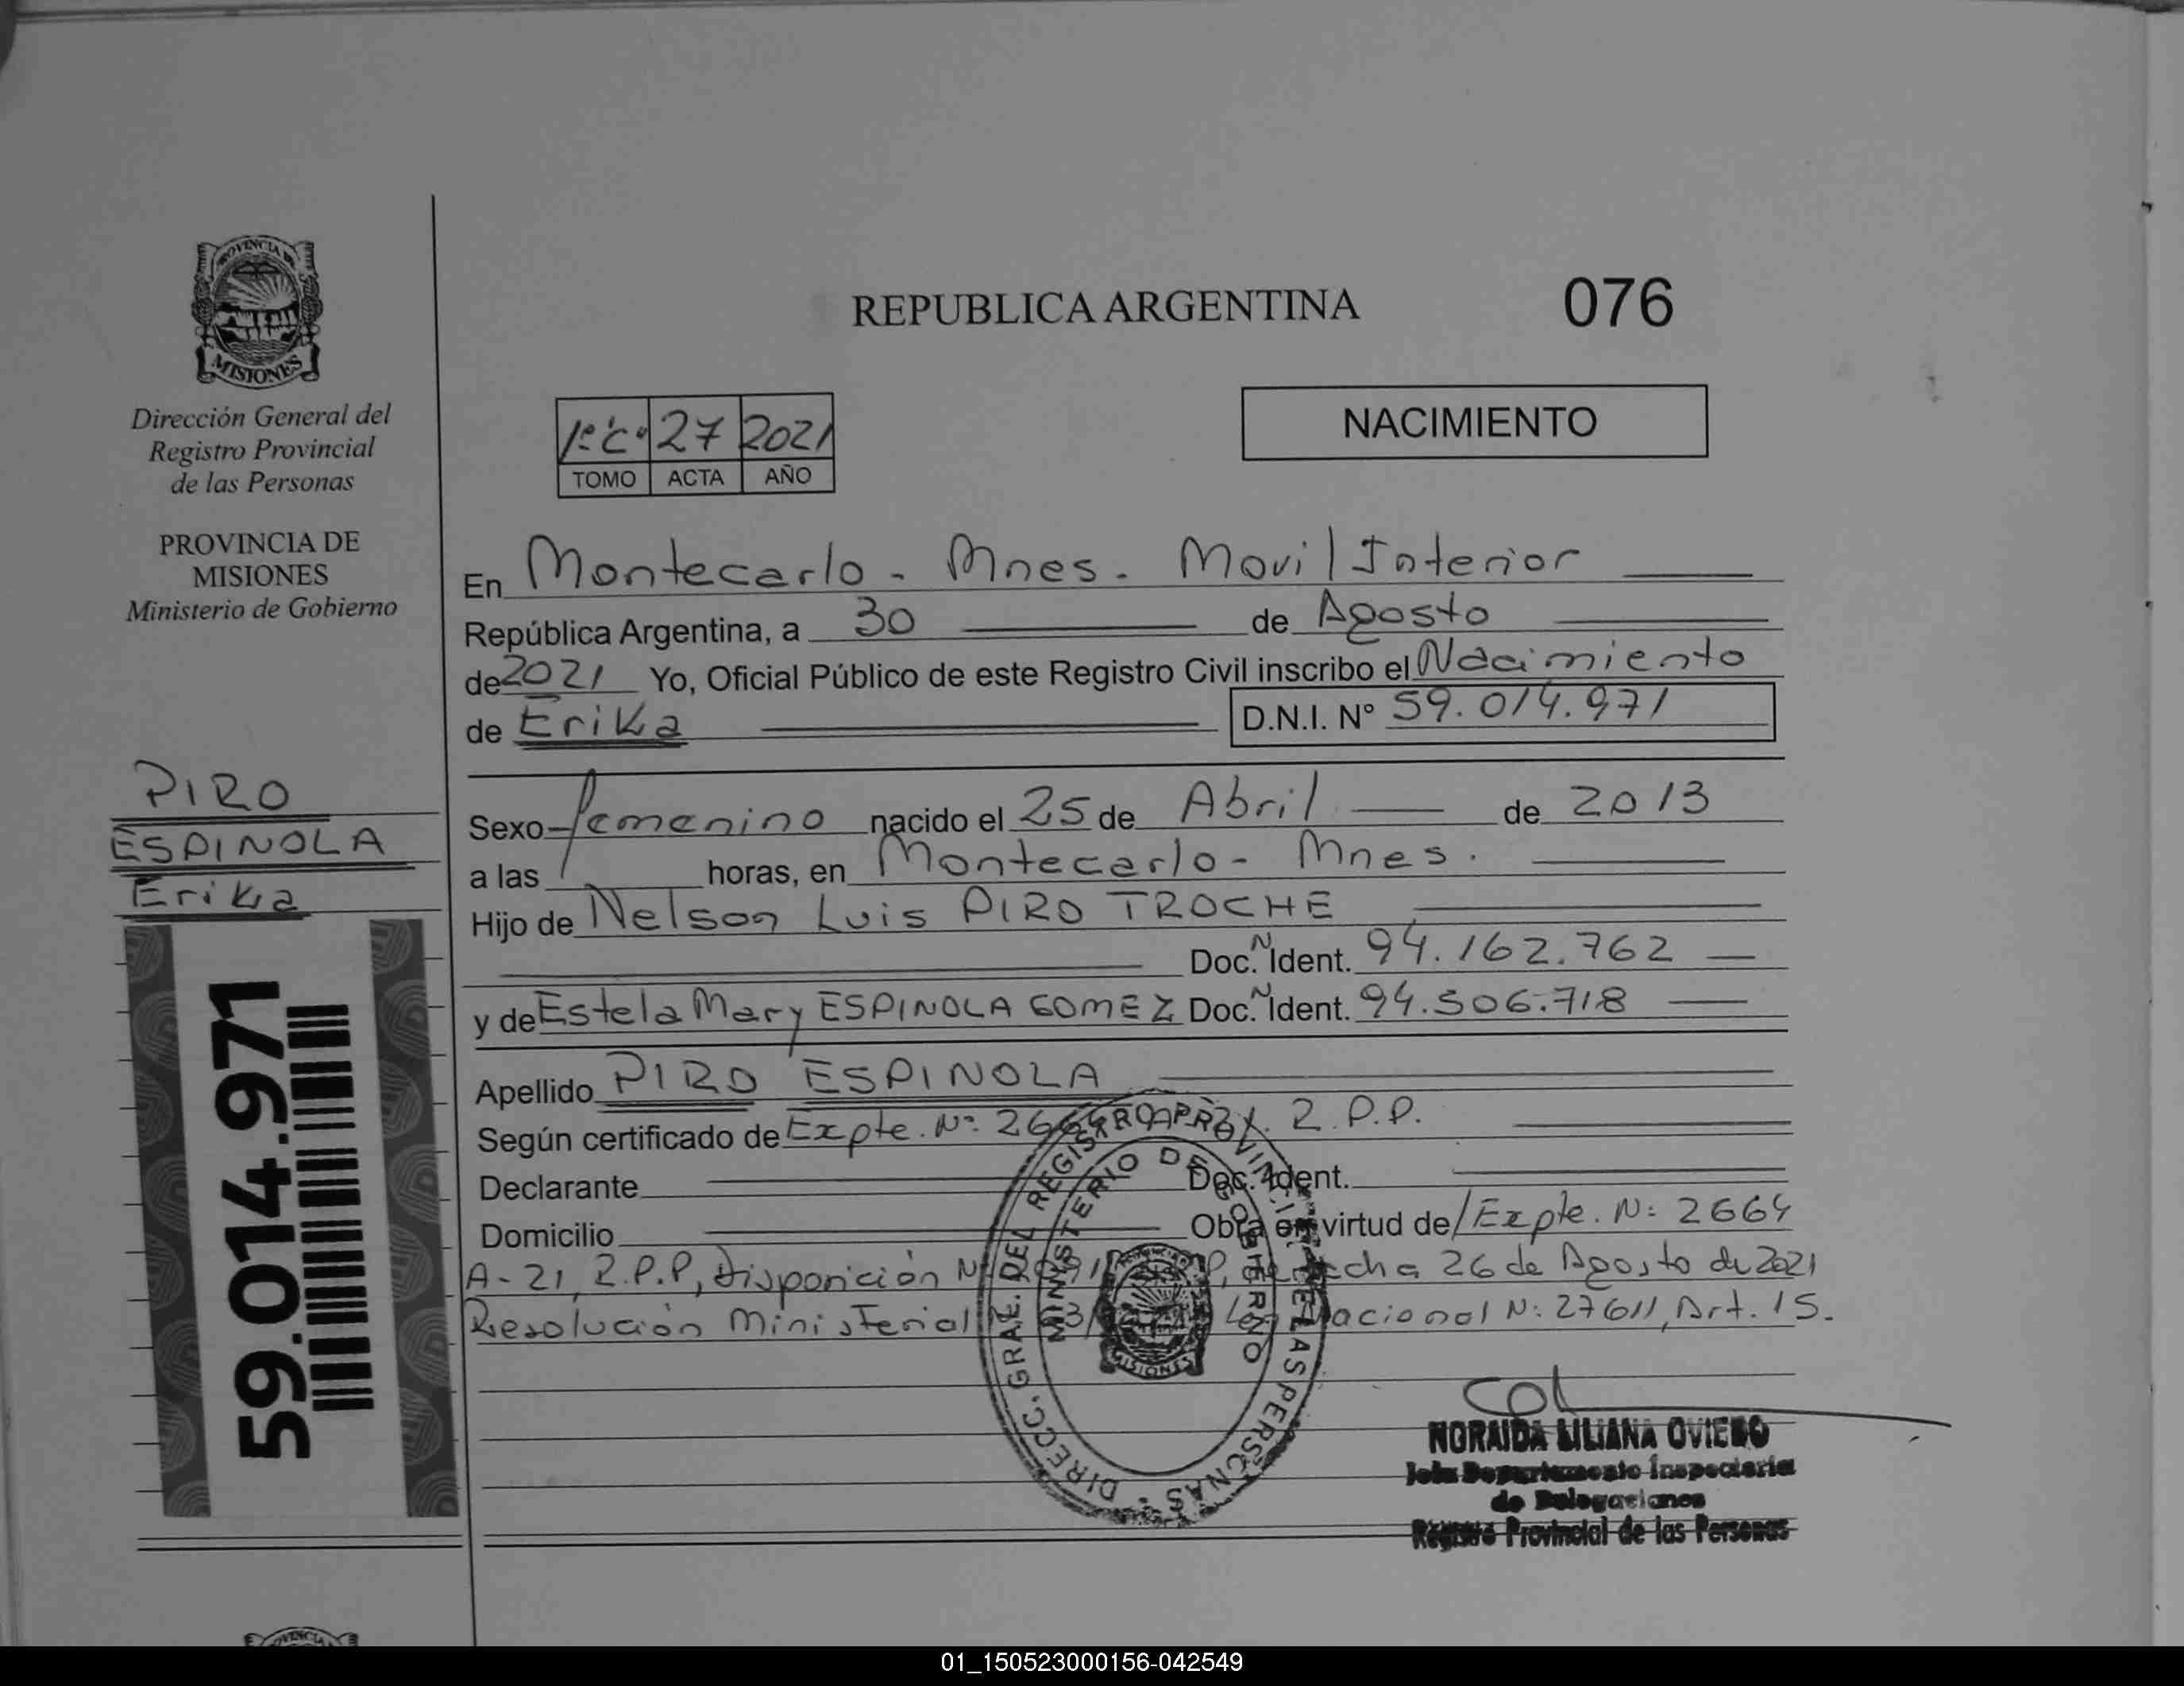 PROVINCIA DE
MISIONES
Dirección General del
Registro Provincial
de las Personas
PROVINCIA DE
MISIONES
Ministerio de Gobierno
PIRO
ESPINOLA
Erika
59.014.971
REPUBLICA ARGENTINA
076
1º C. 27 2021
TOMO ACTA AÑO
NACIMIENTO
En Montecarlo - Mnes. Movil Interior
República Argentina, a 30 de Agosto
de 2021 Yo, Oficial Público de este Registro Civil inscribo el Nacimiento
de Erika D.N.I. Nº 59.014.971
Sexo femenino nacido el 25 de Abril de 2013
a las horas, en Montecarlo - Mnes.
Hijo de Nelson Luis PIRO TROCHE
Doc. N Ident. 94.162.762
y de Estela Mary ESPINOLA GOMEZ Doc. N Ident. 94.506.718
Apellido PIRO ESPINOLA
Según certificado de Expte. Nº: R.P.P.
Declarante Doc. Ident.
Domicilio Obra en virtud de/Expte. N: 2664
A-21, R.P.P, Disposición fecha 26 de Agosto de 2021
Resolución Ministerial Ley Nacional N: 27611, Art. 15.
DIRECC. GRAL. DEL REGISTRO PROVINCIAL DE LAS PERSONAS
MINISTERIO DE GOBIERNO
MISIONES
NORAIDA LILIANA OVIEDO
Jefa Departamento Inspectoria
de Delegaciones
Registro Provincial de las Personas
01_150523000156-042549